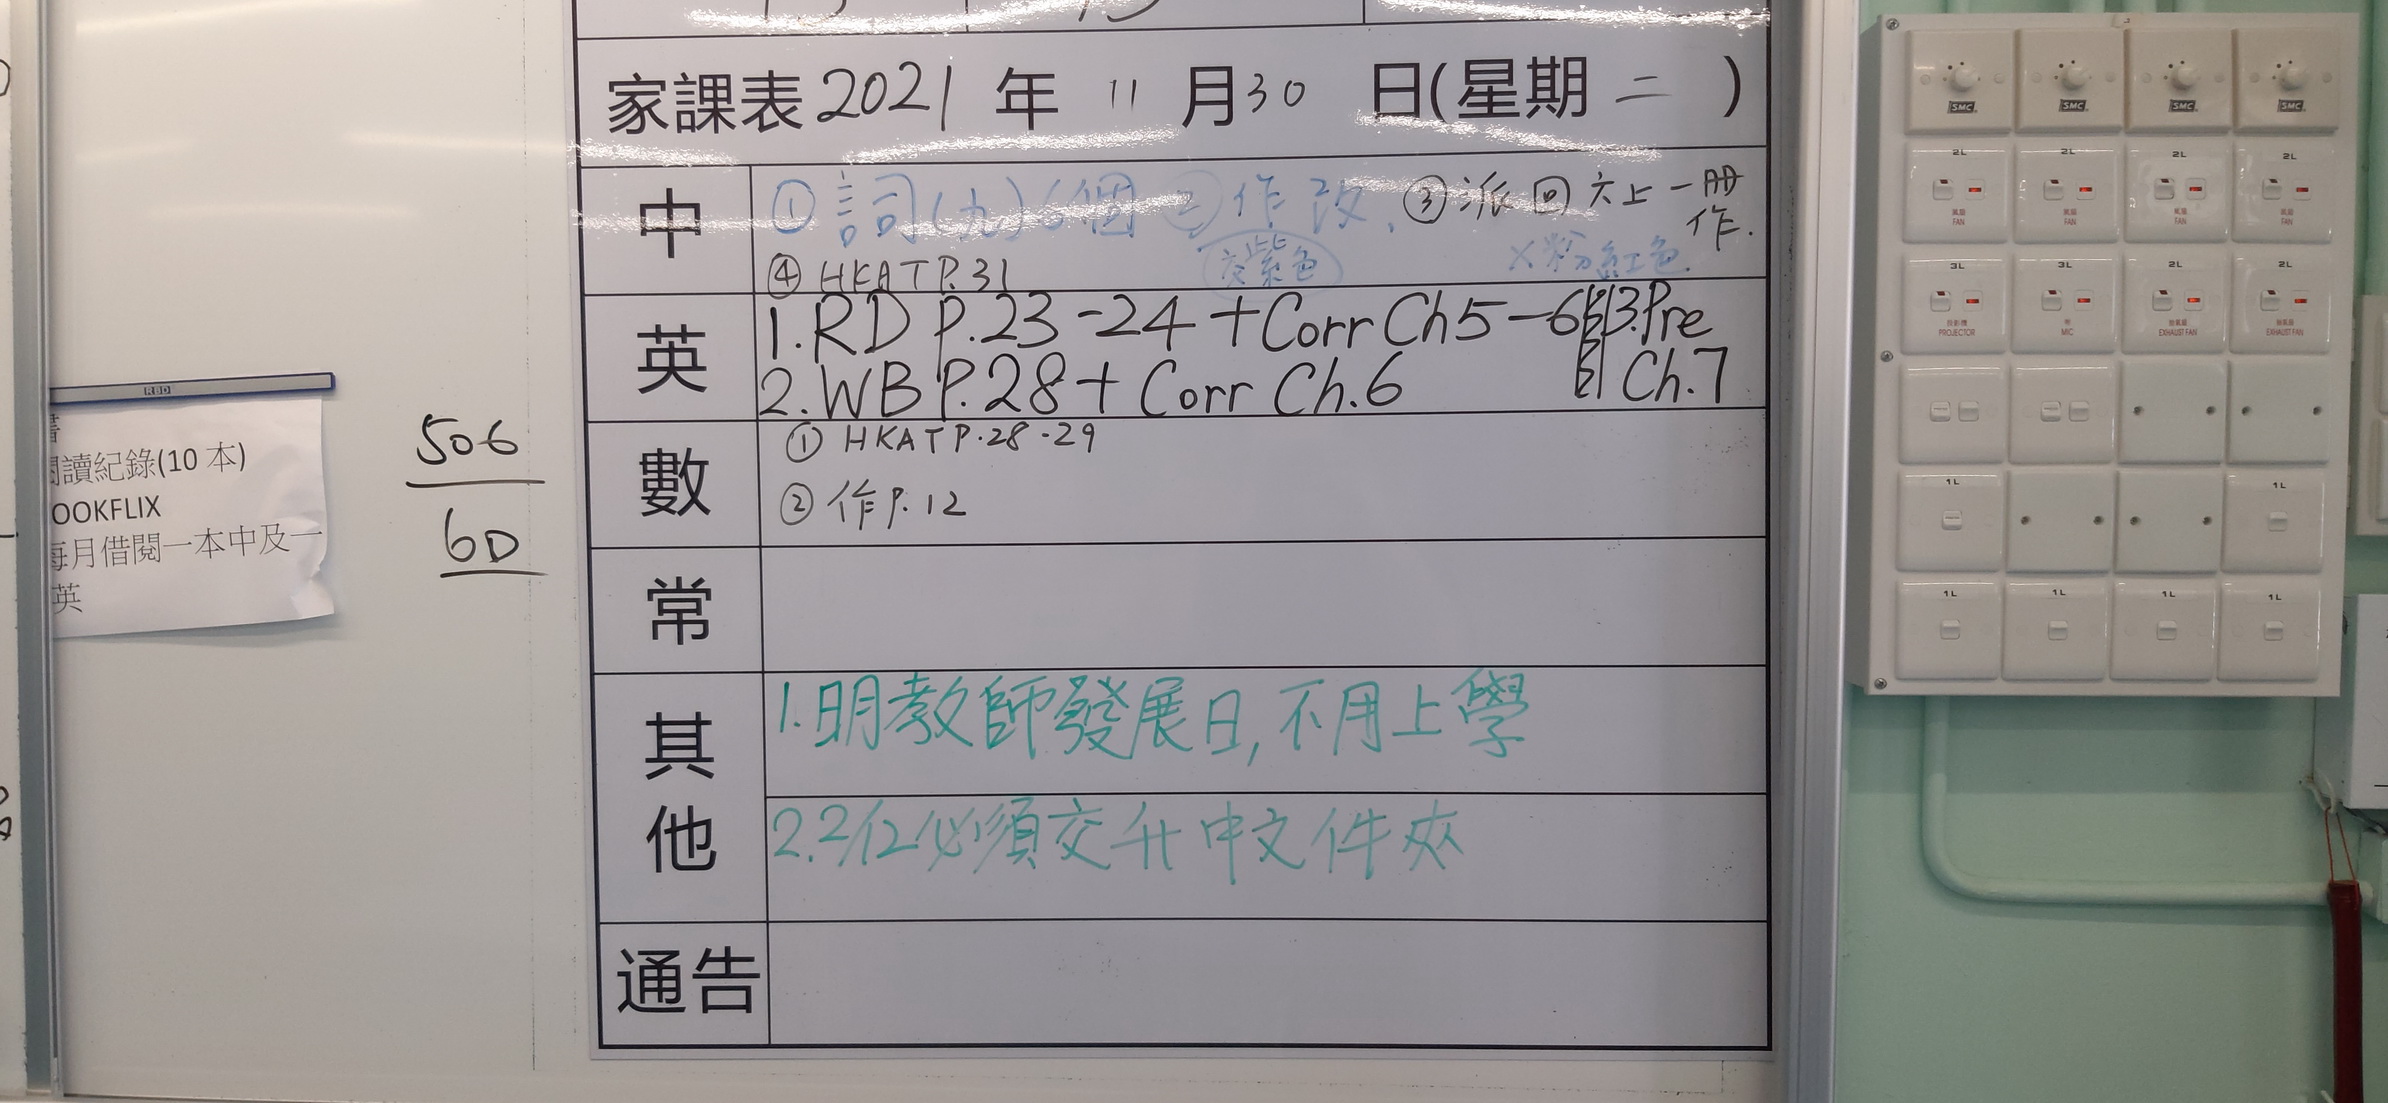 家課表 2021 年 11 月 30 日(星期 二 )
中
① 詞(九)6個 ② 作改. ③ 派回六上一冊
作.
交紫色
x粉紅色
④ HKAT P.31
英
1. RD P.23-24 + Corr Ch5-6
2. WB P.28 + Corr Ch.6
3.Pre
Ch.7
數
① HKAT P.28-29
② 作P.12
常
其他
1.明教師發展日,不用上學
2.2/12必須交升中文件夾
通告
閱讀紀錄(10 本)
OOKFLIX
每月借閱一本中及一
英
506
6D
SMC SMC SMC SMC
2L 2L 2L 2L
風扇 風扇 風扇 風扇
FAN FAN FAN FAN
3L 3L 2L 2L
投影機 咪 抽氣扇 抽氣扇
PROJECTOR MIC EXHAUST FAN EXHAUST FAN
1L 1L
1L 1L 1L 1L